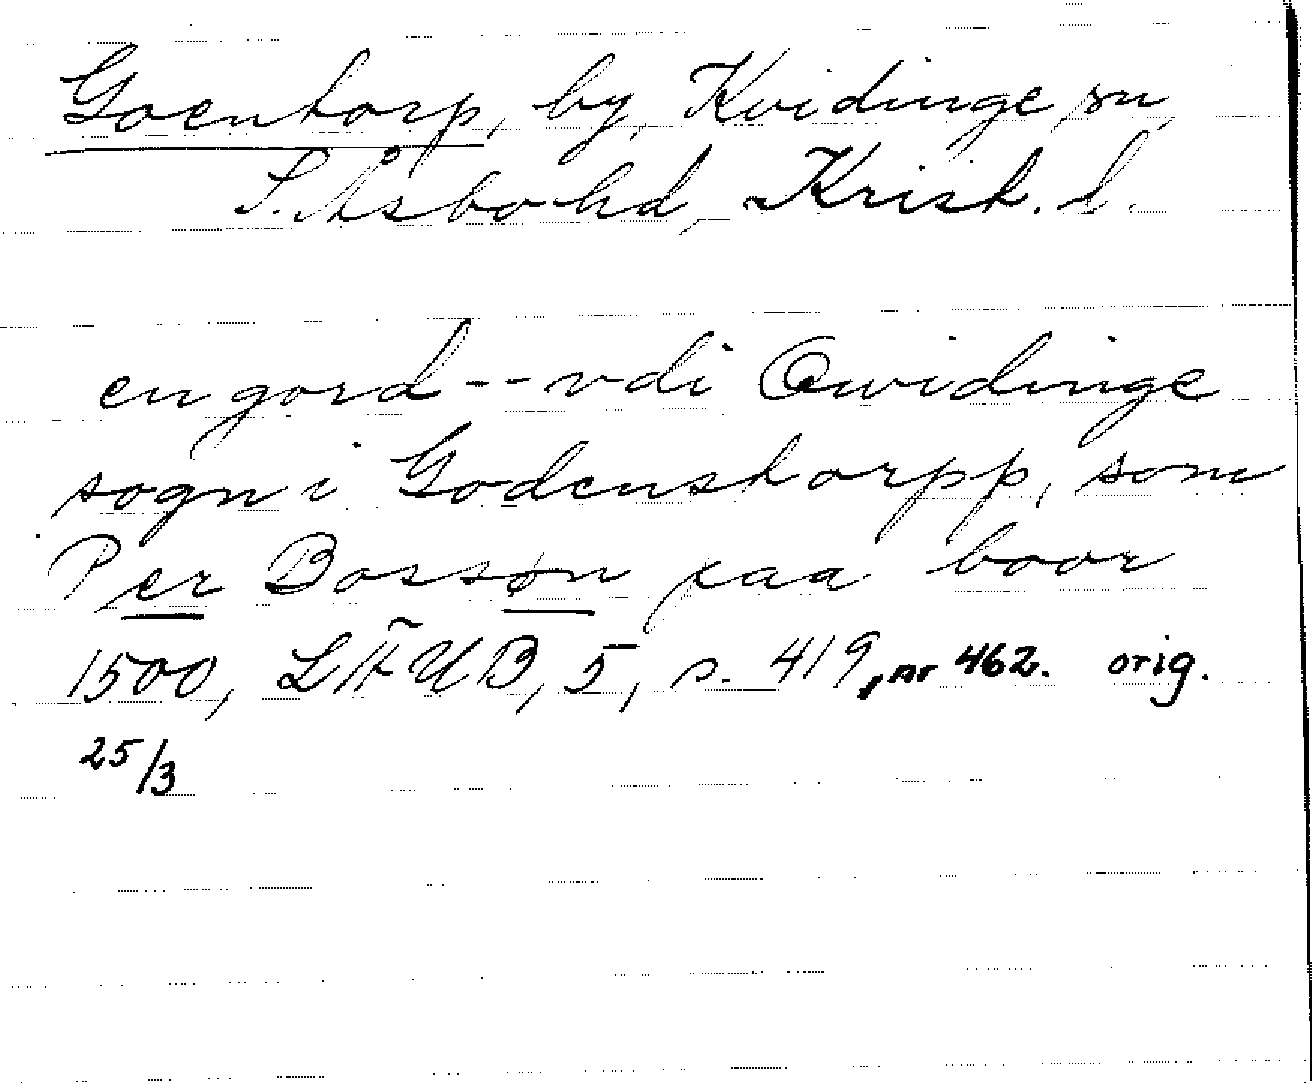 Goentorp, by, Kvidinge sn,
S. Åsbo hd, Krist. l.
en gord -- vdi Qwidinge
sogn i Godenstorpp, som
Per Bossøn paa boor
1500, LÆUB, 5, s. 419, nr 462. orig.
25/3